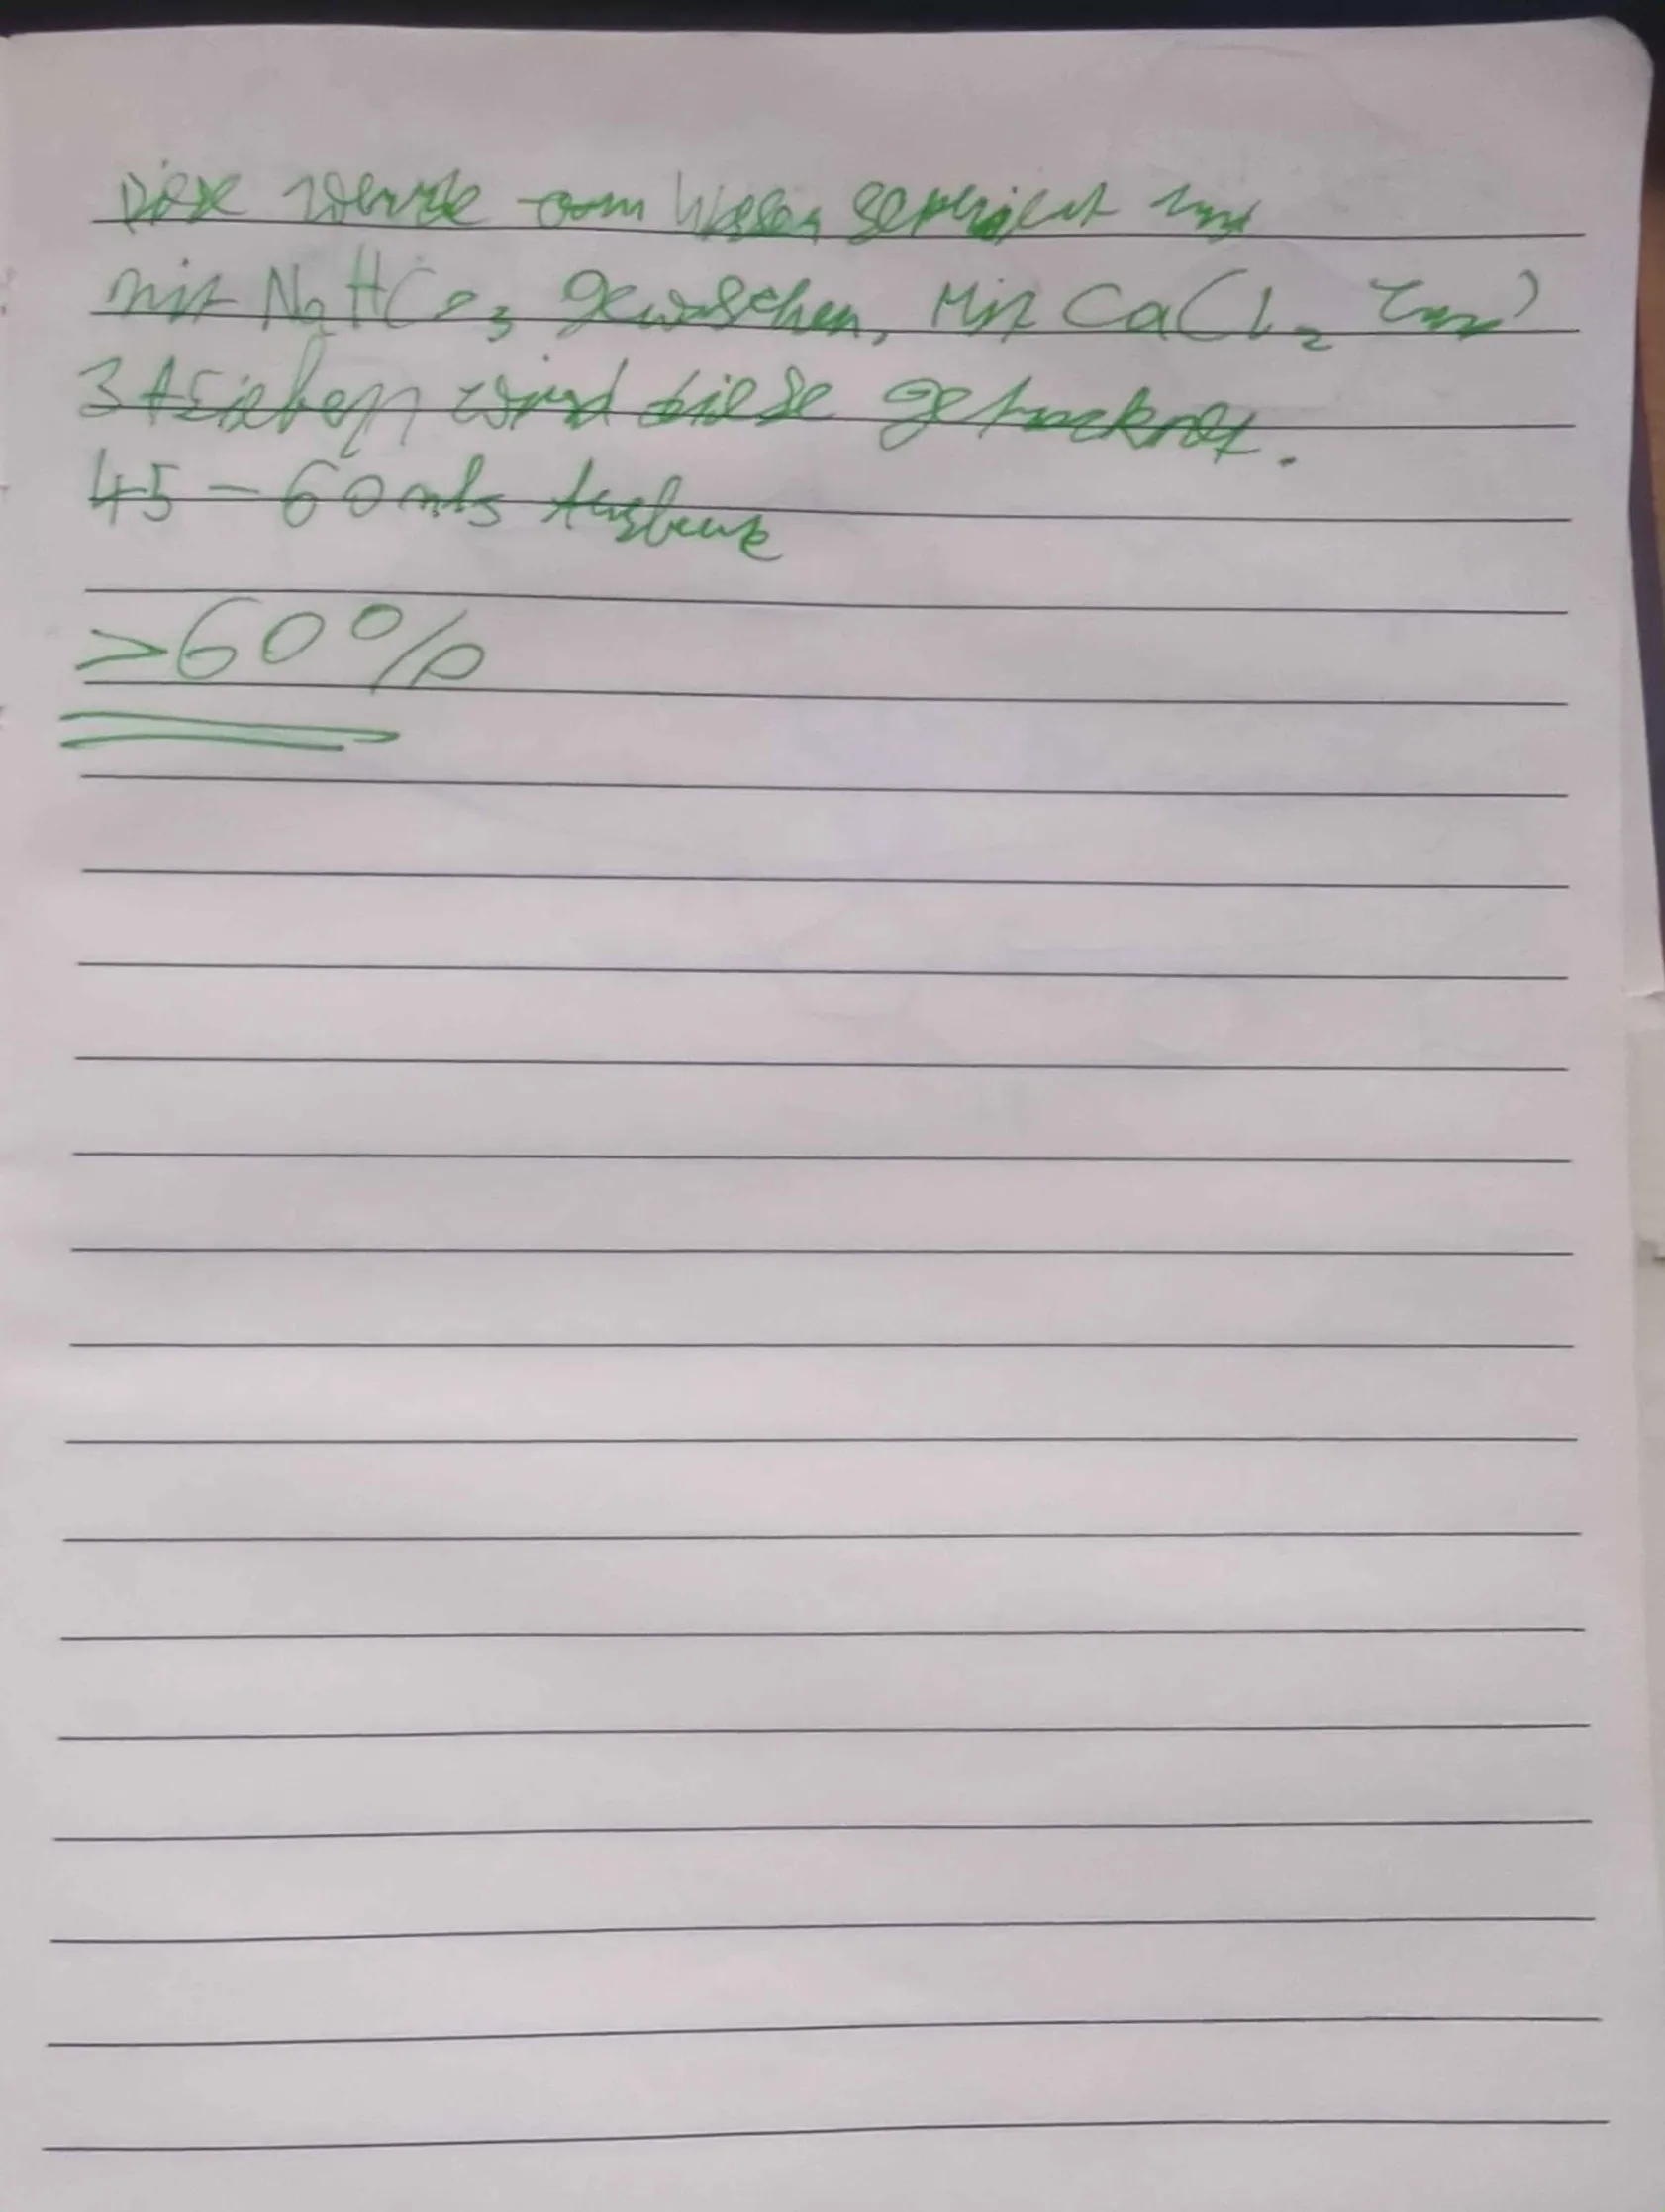 Diese werde vom Wasser separiert und
mit NaHCO3 gewaschen, Mit CaCl2 und
3ASieben wird diese getrocknet.
45 - 60 mls Ausbeute
>60%